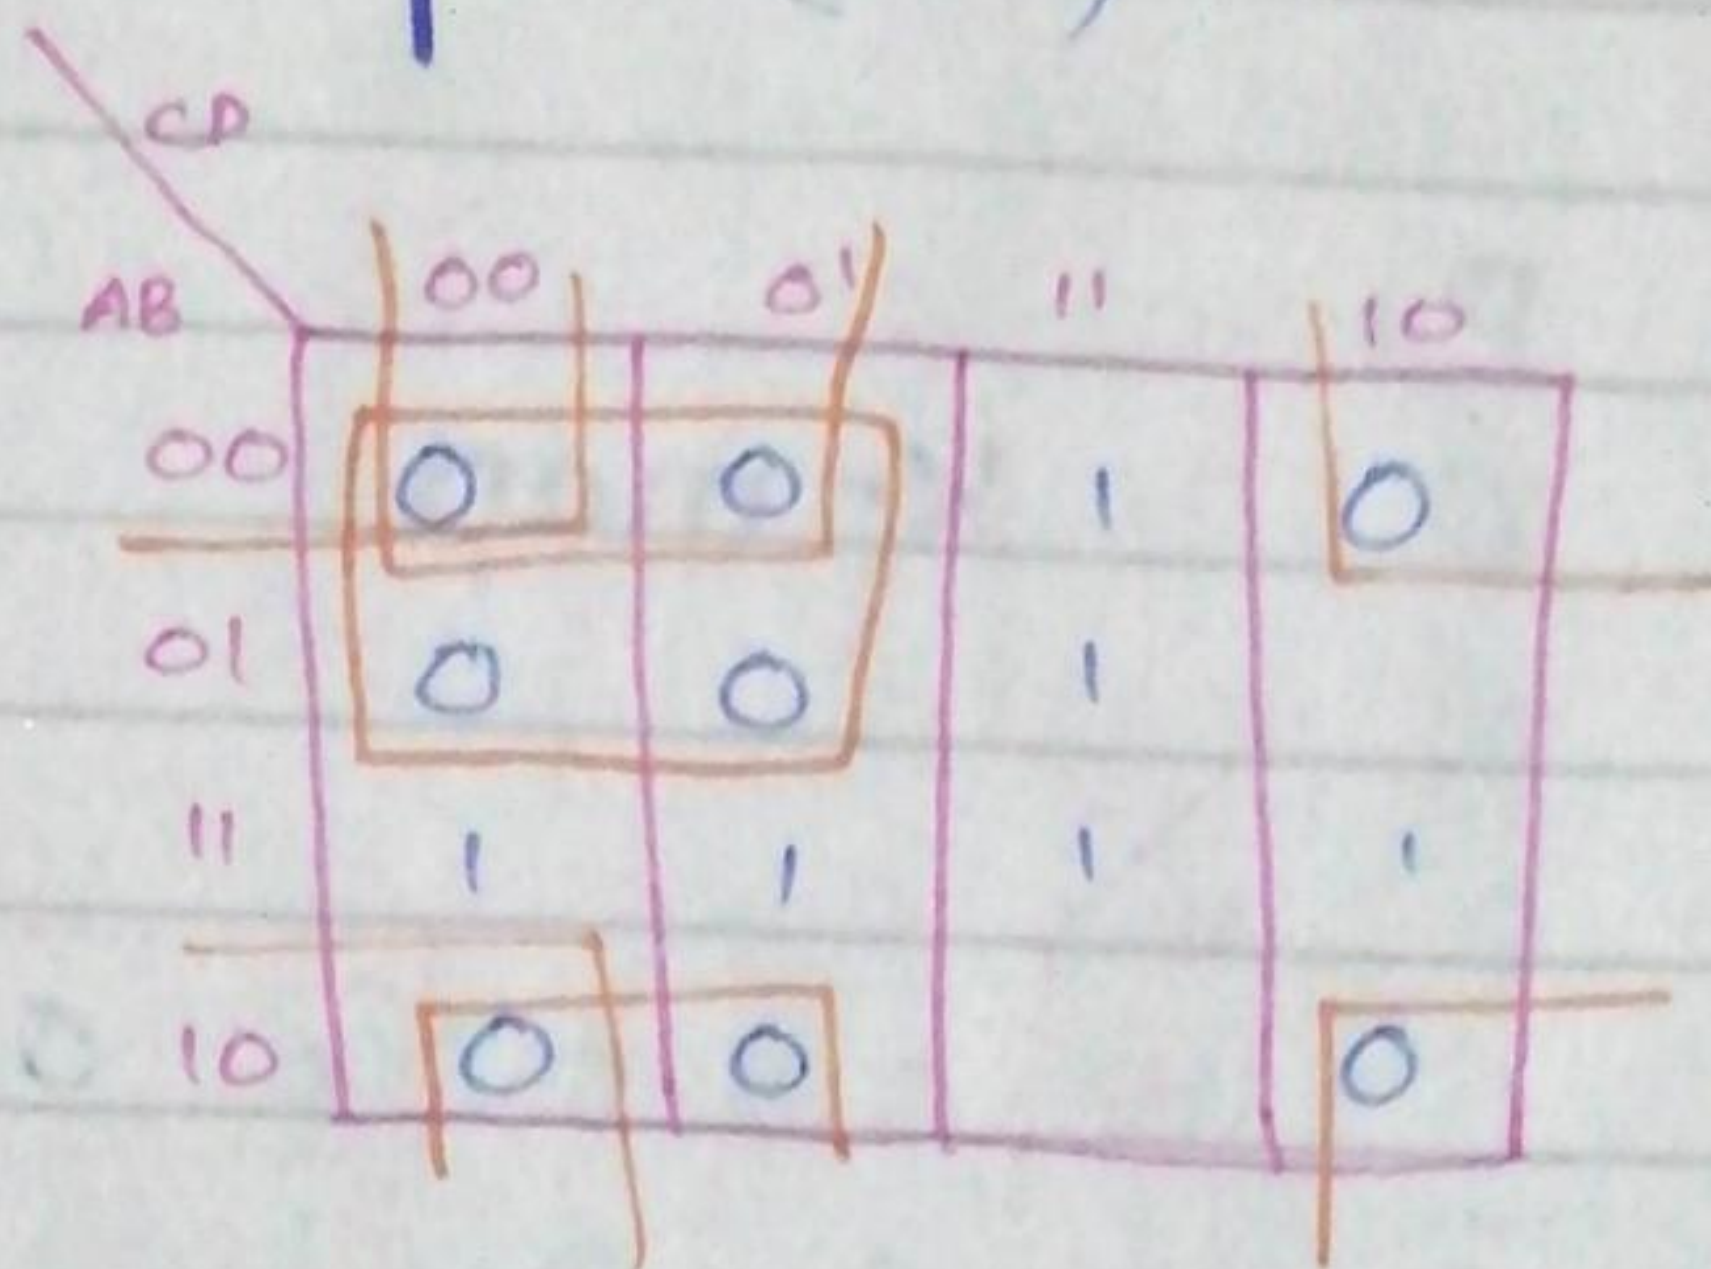 CD
AB 00 01 11 10
00 0 0 1 0
01 0 0 1
11 1 1 1 1
10 0 0 0